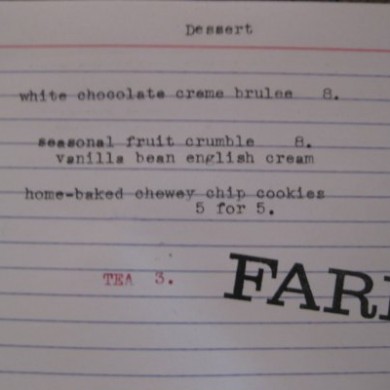 Dessert
white chocolate creme brulee 8.
seasonal fruit crumble 8.
vanilla bean english cream
home-baked chewey chip cookies
5 for 5.
TEA 3.
FAR